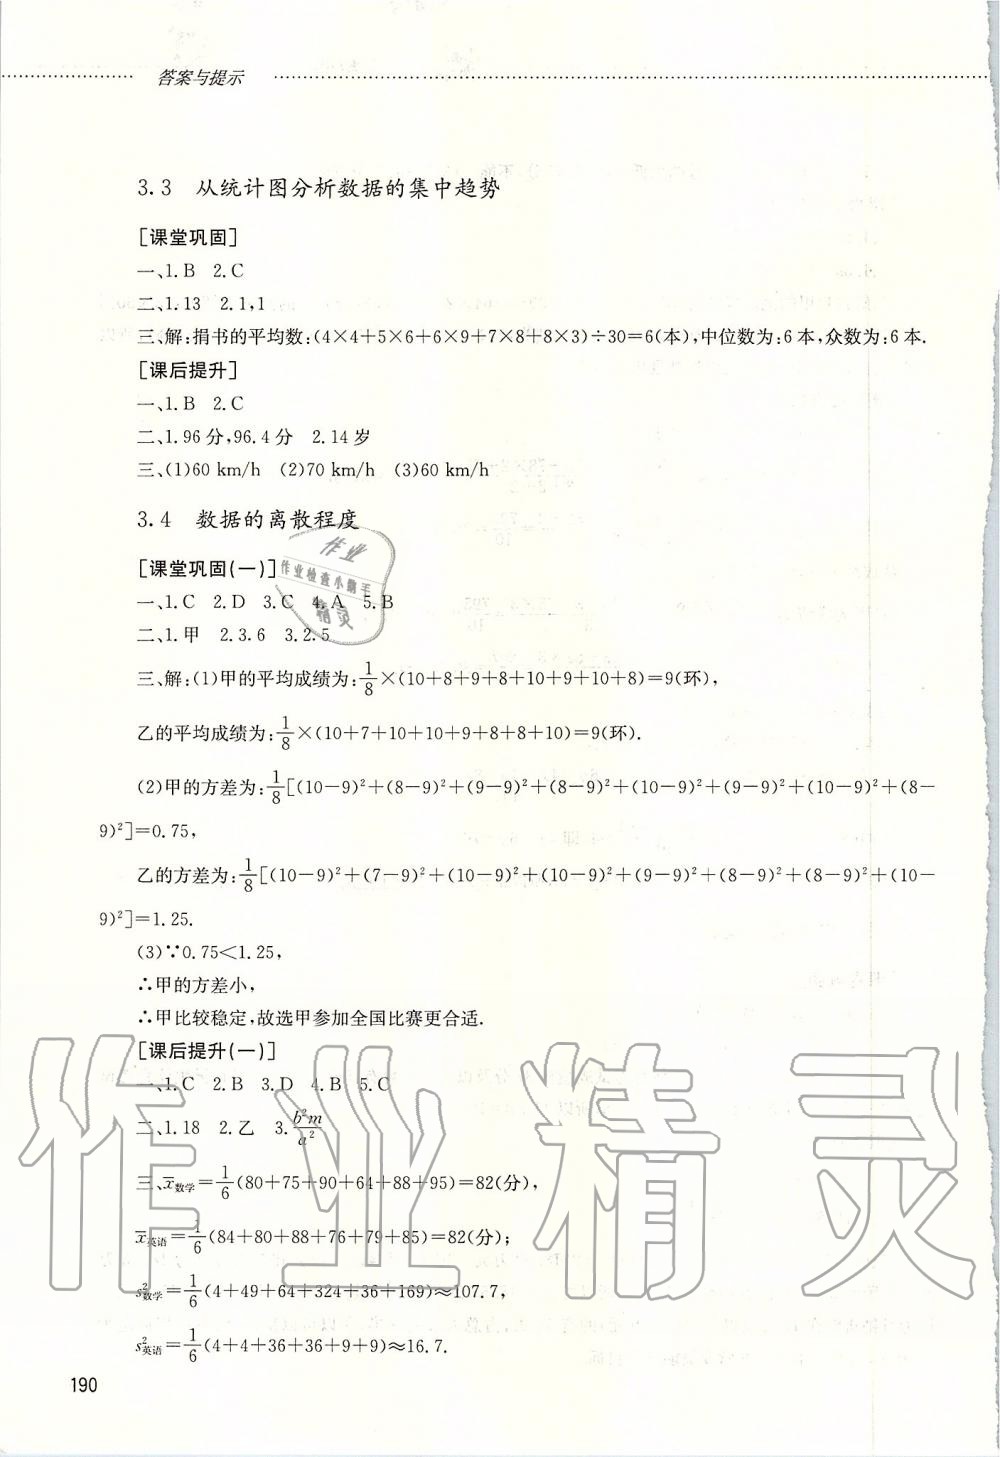 答案与提示
3.3 从统计图分析数据的集中趋势
[课堂巩固]
一、1.B 2.C
二、1.13 2.1,1
三、解:捐书的平均数:(4×4+5×6+6×9+7×8+8×3)÷30=6(本),中位数为:6本,众数为:6本.
[课后提升]
一、1.B 2.C
二、1.96分,96.4分 2.14岁
三、(1)60 km/h (2)70 km/h (3)60 km/h
3.4 数据的离散程度
[课堂巩固(一)]
一、1.C 2.D 3.C 4.A 5.B
二、1.甲 2.3.6 3.2.5
三、解:(1)甲的平均成绩为:1/8×(10+8+9+8+10+9+10+8)=9(环),
乙的平均成绩为:1/8×(10+7+10+10+9+8+8+10)=9(环).
(2)甲的方差为:1/8[(10-9)²+(8-9)²+(9-9)²+(8-9)²+(10-9)²+(9-9)²+(10-9)²+(8-
9)²]=0.75,
乙的方差为:1/8[(10-9)²+(7-9)²+(10-9)²+(10-9)²+(9-9)²+(8-9)²+(8-9)²+(10-
9)²]=1.25.
(3)∵0.75<1.25,
∴甲的方差小,
∴甲比较稳定,故选甲参加全国比赛更合适.
[课后提升(一)]
一、1.C 2.B 3.D 4.B 5.C
二、1.18 2.乙 3.b²m/a²
三、x̄数学=1/6(80+75+90+64+88+95)=82(分),
x̄英语=1/6(84+80+88+76+79+85)=82(分);
s²数学=1/6(4+49+64+324+36+169)≈107.7,
s²英语=1/6(4+4+36+36+9+9)≈16.7.
190
作业
作业检查小帮手
精灵
作业精灵